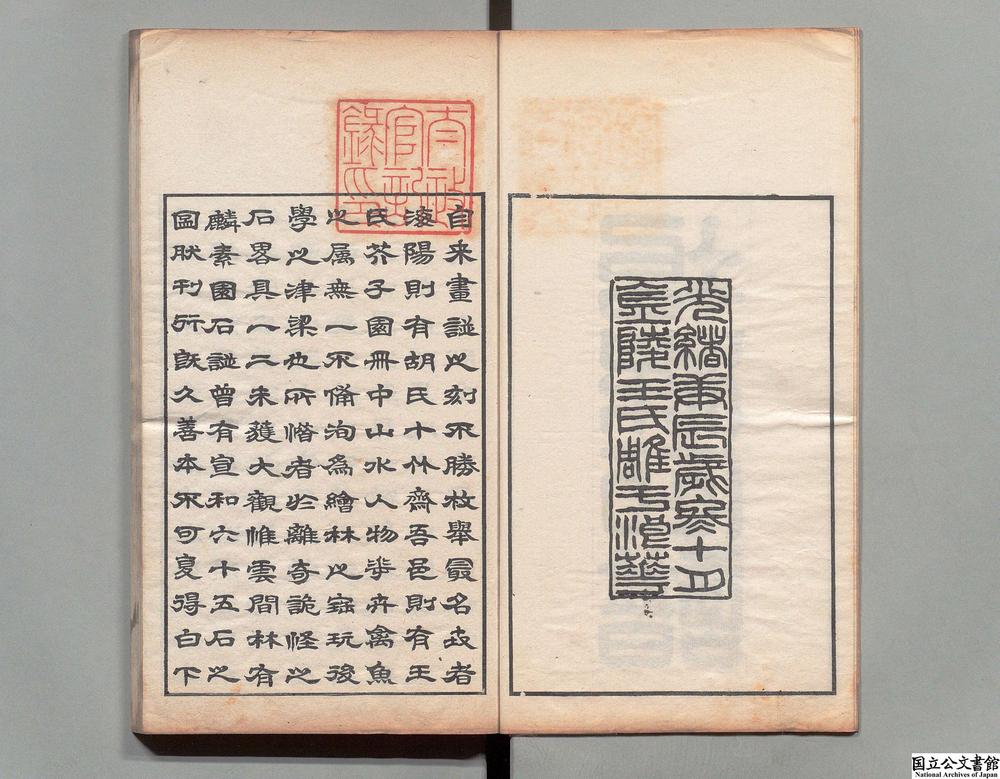 光緒庚辰歲冬十月
金陵王氏雕于浪華
太政
官記
錄印
自来畫譜之刻不勝枚舉最名者
海陽則有胡氏十竹齋吾邑則有王
氏芥子園冊中山水人物花卉禽魚
之属無一不備洵為繪林之寶玩後
學之津梁也所惜者於離奇詭怪之
石畧具一二未獲大觀惟雲間林有
麟素園石譜曾有宣和六十五石之
圖肰刊行旣久善本不可夏得白下
国立公文書館
National Archives of Japan